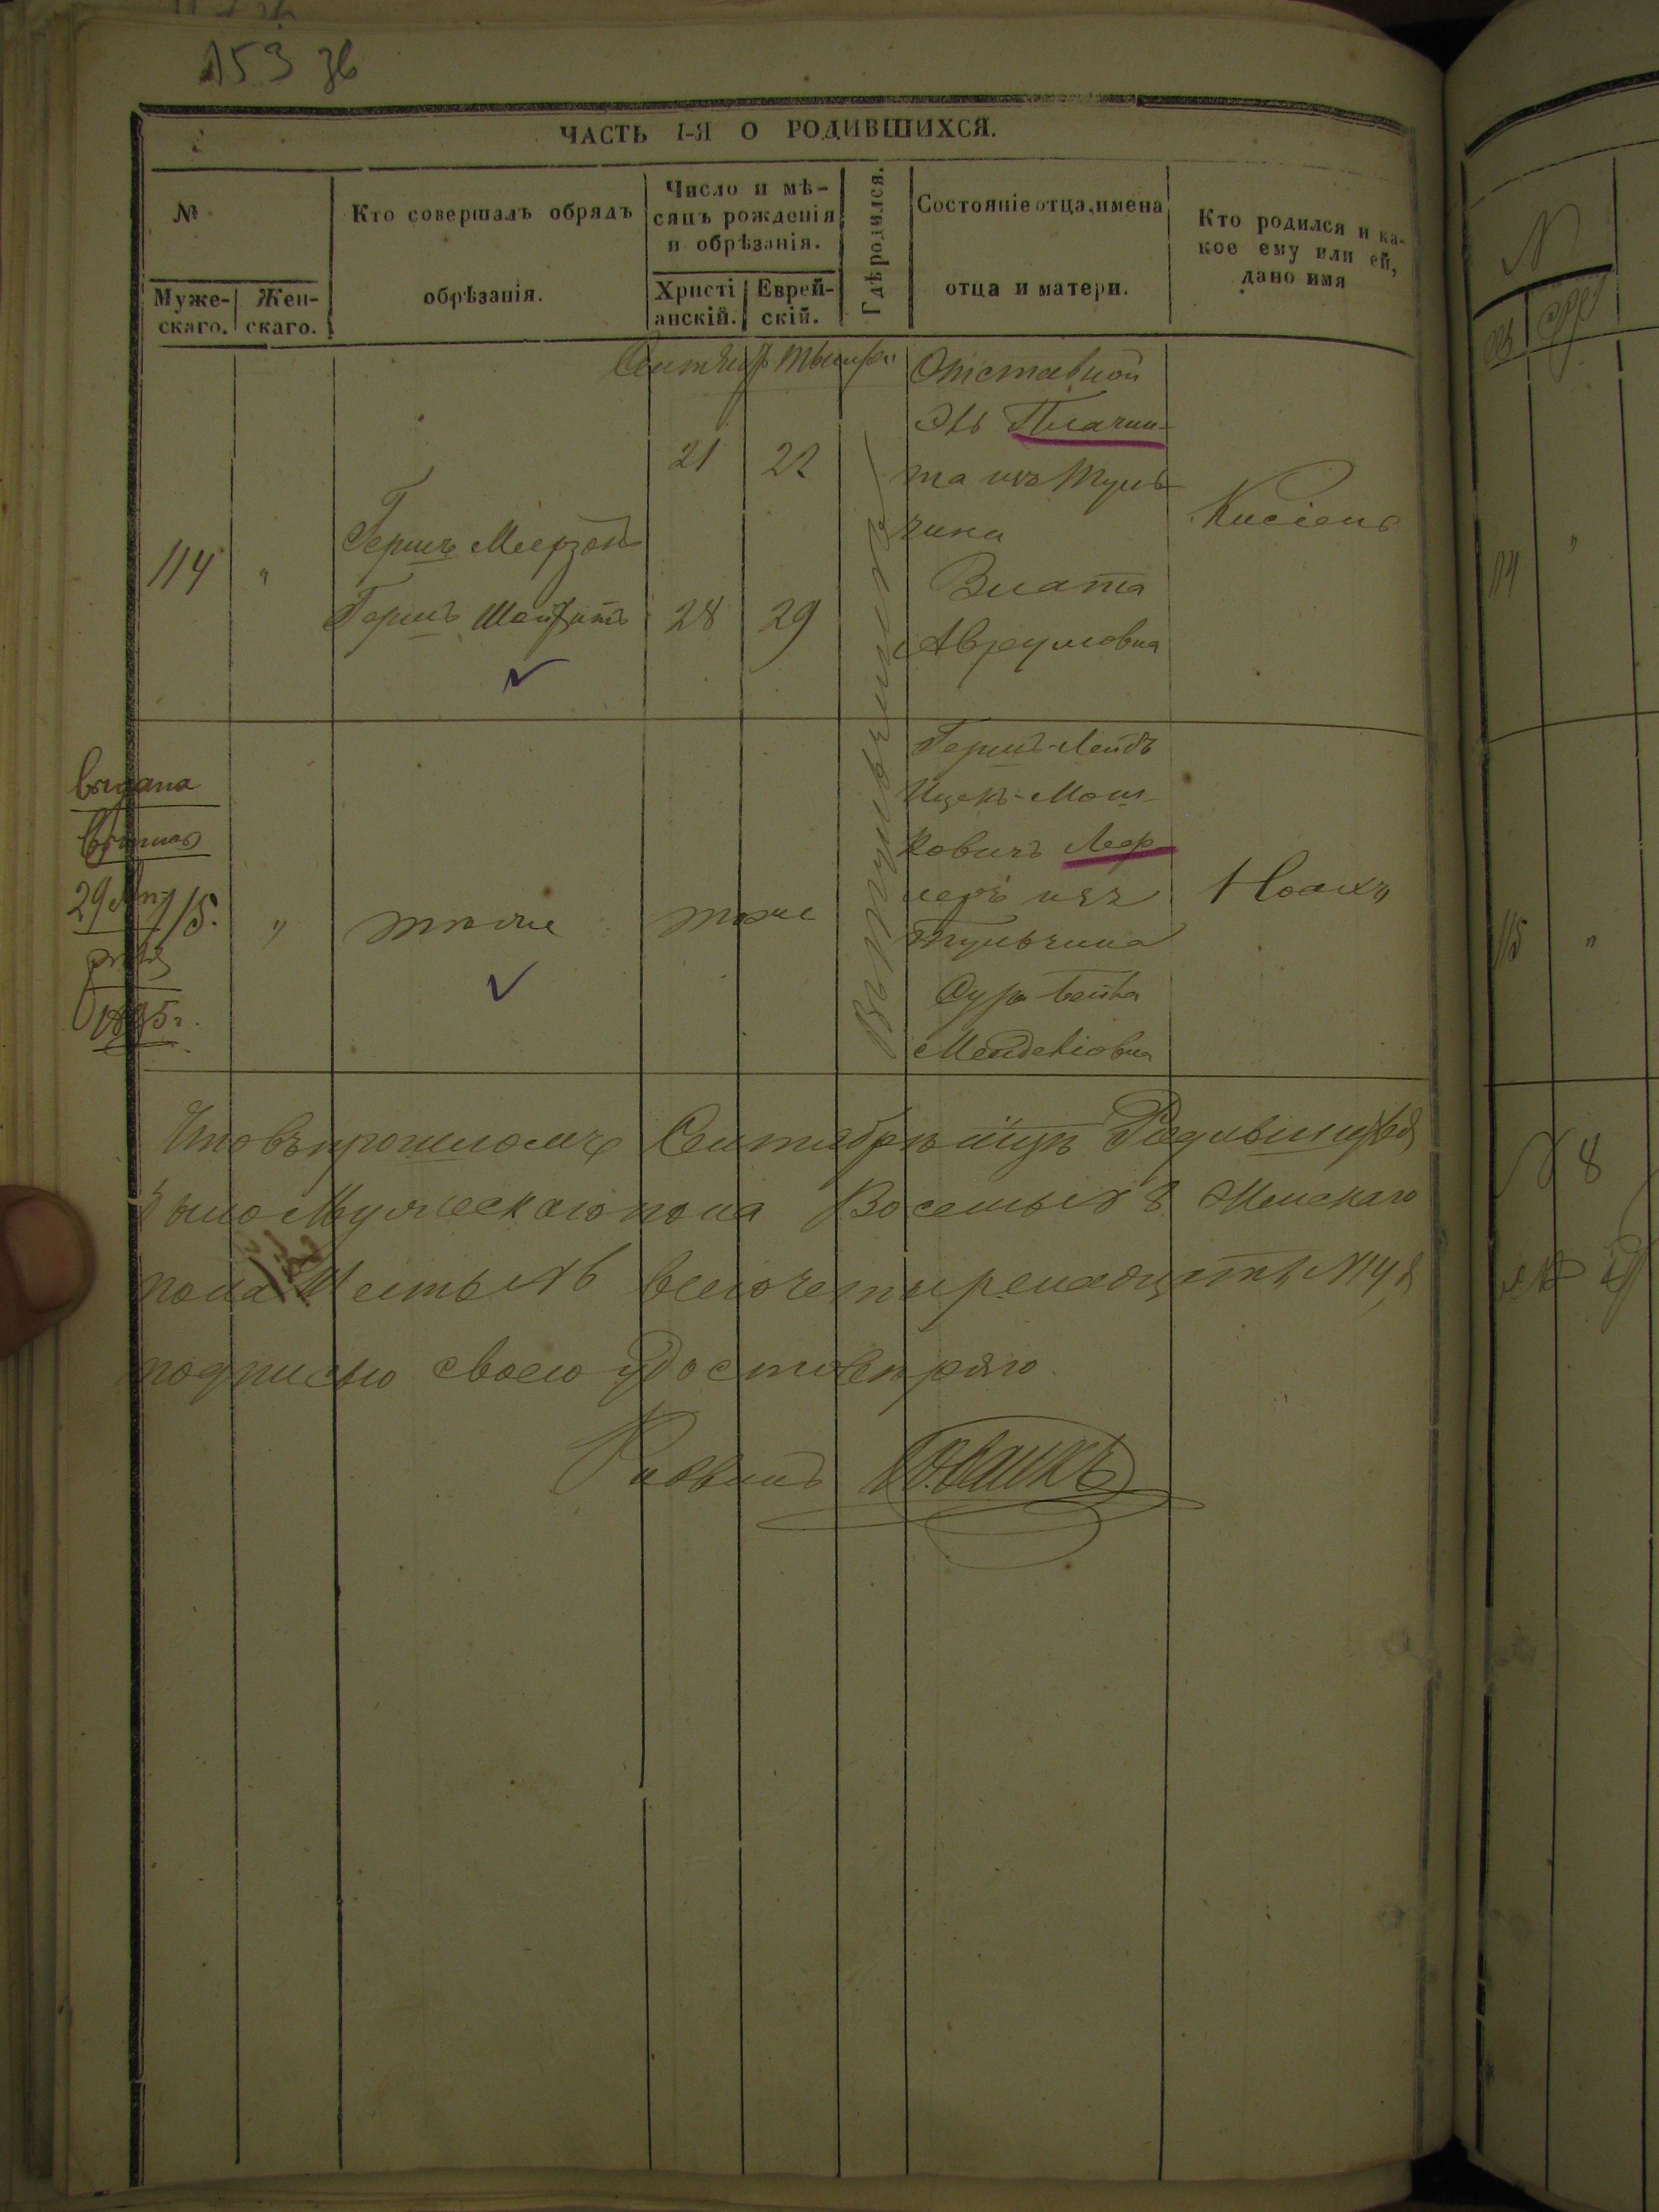 153 зв
ЧАСТЬ I-Я О РОДИВШИХСЯ.
№
Муже-
скаго.
Жен-
скаго.
Кто совершалъ обрядъ
обрѣзанія.
Число и мѣ-
сяцъ рожденія
и обрѣзанія.
Христі
анскій.
Еврей-
скій.
Гдѣ родился.
Состояніе отца, имена
отца и матери.
Кто родился и ка-
кое ему или ей,
дано имя
114
"
Гершъ Меерзон
Гершъ
21
28
22
29
Въ Тульчинѣ
Отставной
Плачин-
та изъ Туль-
чина
Злата
Авремовна
Кисіель
выдана
29
1895 г.
115.
"
тоже
тоже
Гершъ-Лейбъ
Ицекъ-Мош-
ковичъ Лер-
неръ изъ
Тульчина
Сура Бейла
Менделіовна
Ноахъ
Что въ прошломъ Сентябрѣ м-цѣ Родившихся
было Мужескаго пола Восемь № 8 Женскаго
пола Шесть № 6 всего четырнадцать № 14, я
подписью своею удостовѣряю.
Раввинъ
N
114
"
115
"
№ 8